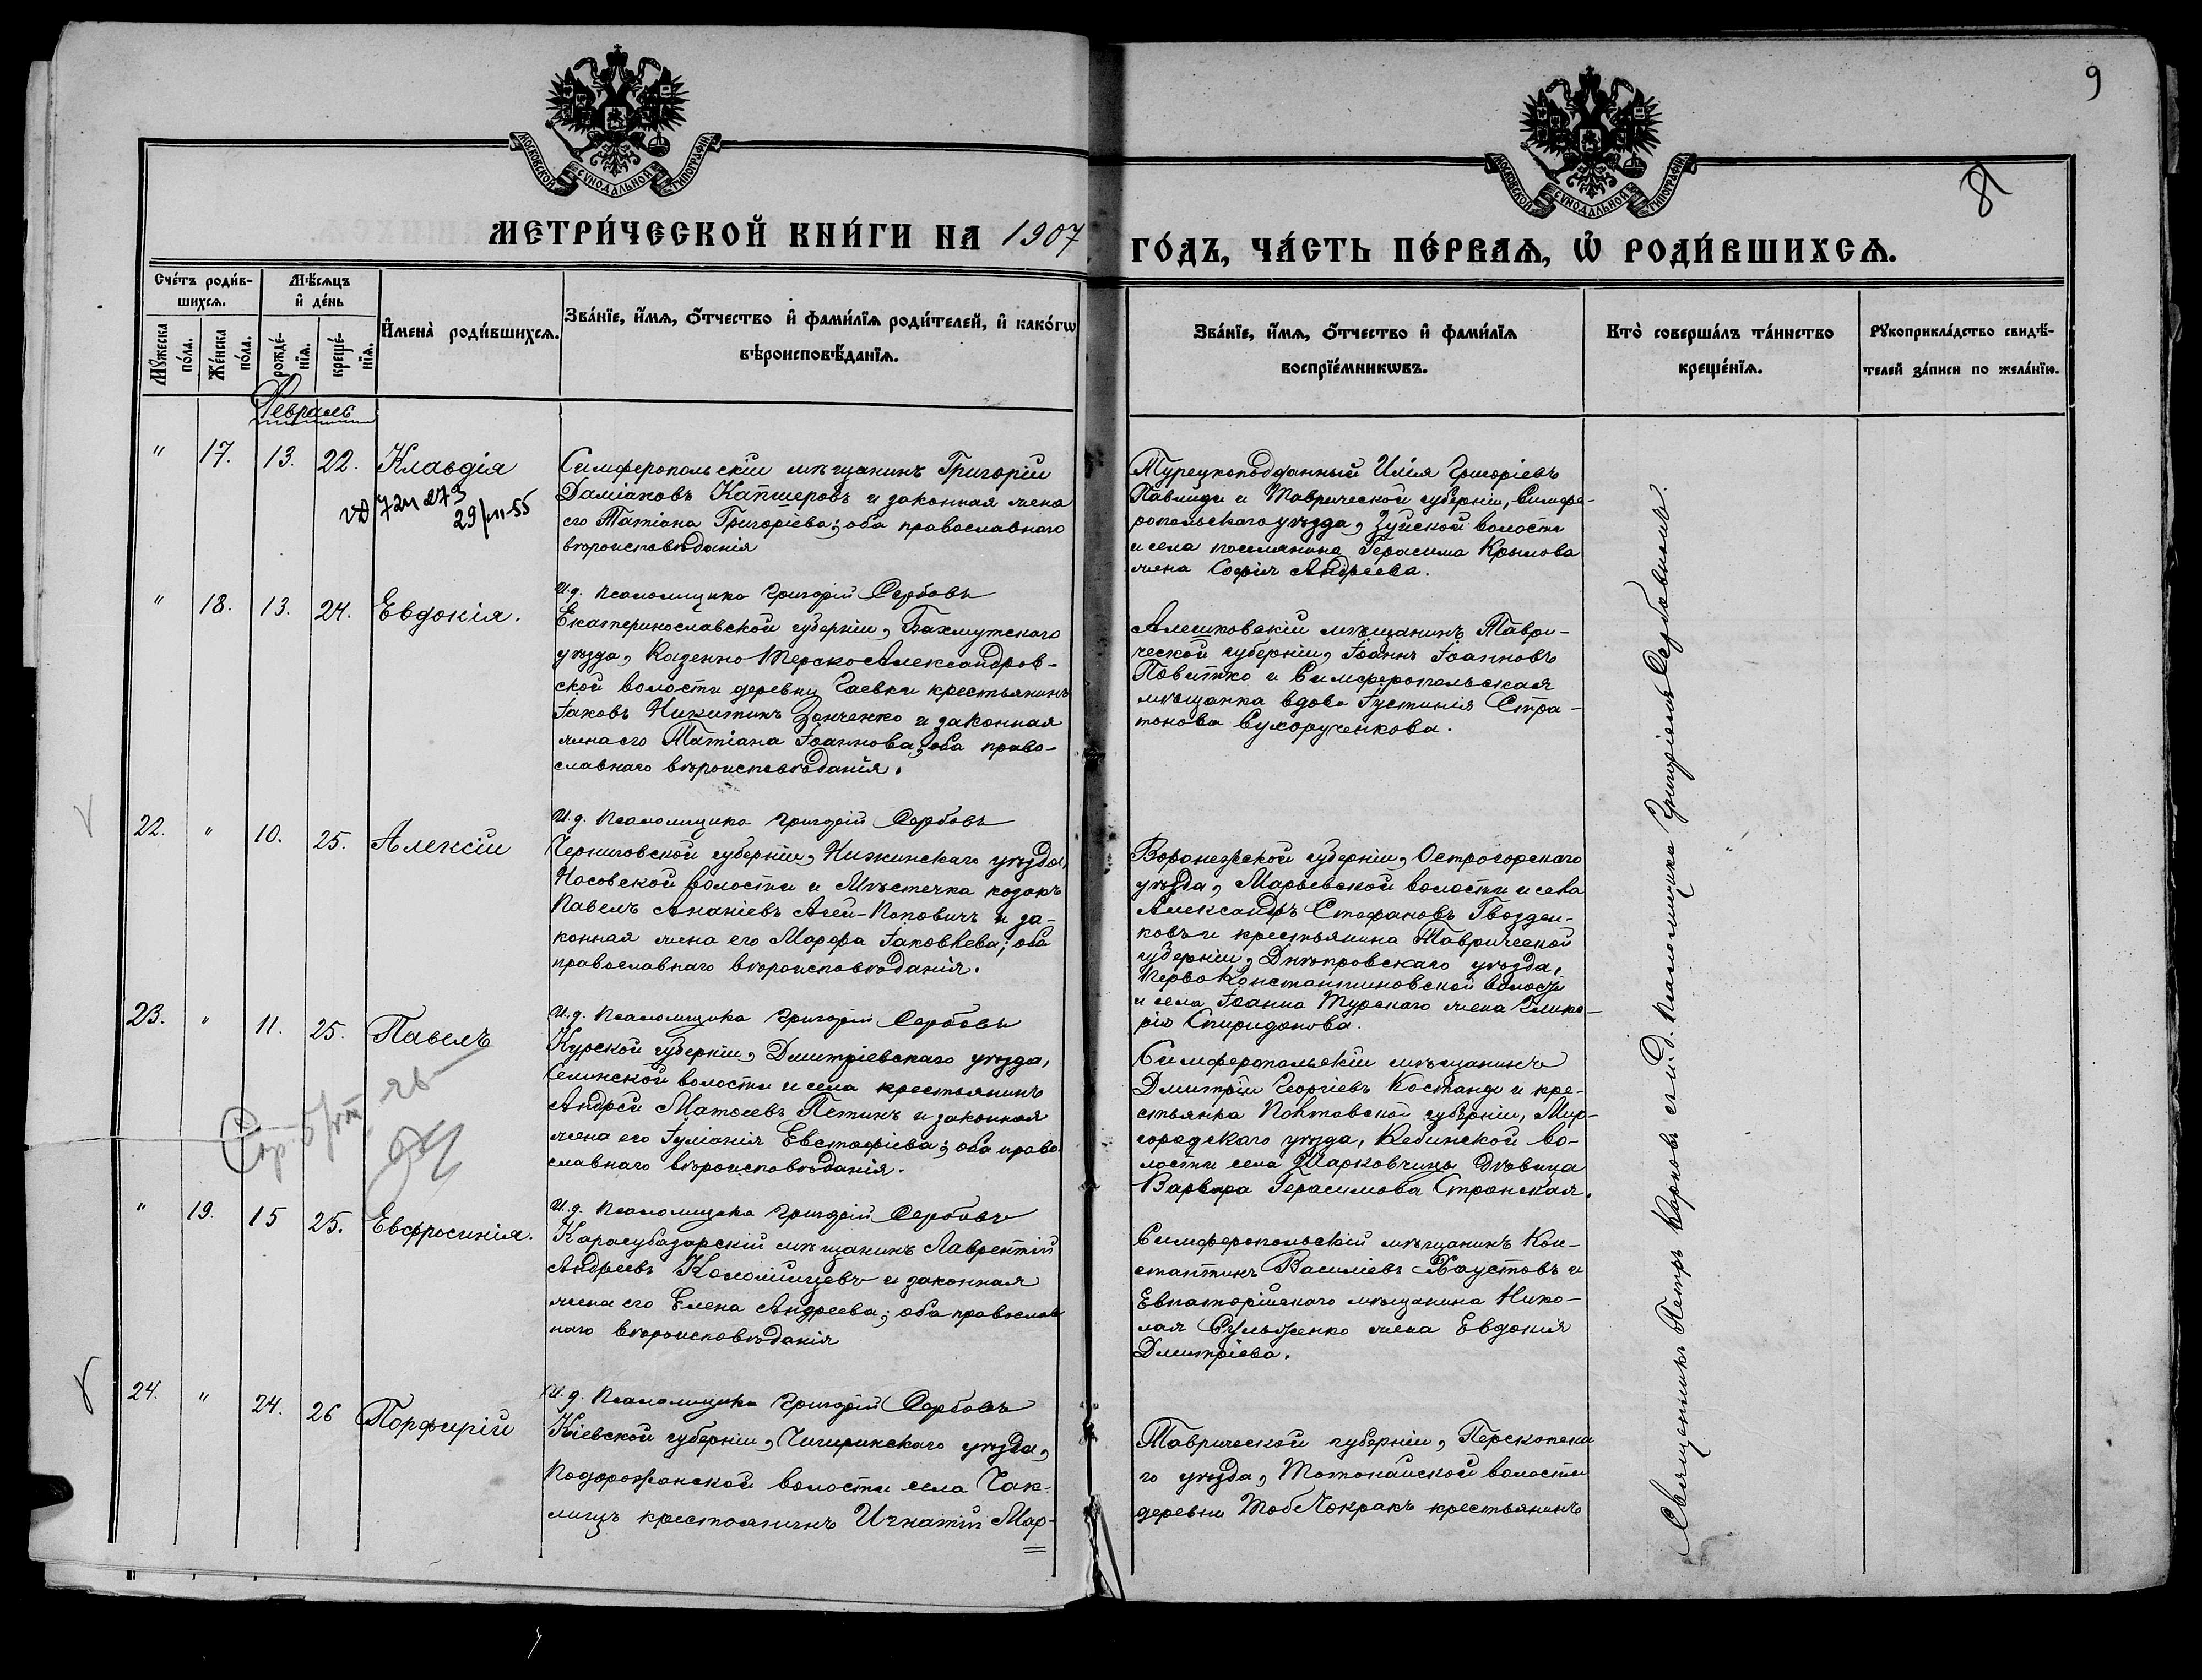 9
81
МОСКОВСКОЙ СУНОДАЛЬНОЙ ТИПОГРАФІИ
МОСКОВСКОЙ СУНОДАЛЬНОЙ ТИПОГРАФІИ
МЕТРИ́ЧЕСКОЙ КНИ́ГИ НА 1907 ГО́ДЪ, ЧА́СТЬ ПЕ́РВАѦ, Ѡ҆ РОДИ́ВШИХСѦ.
Сче́тъ роди́в-
шихсѧ.
Мꙋжеска
по́ла.
Же́нска
по́ла.
Мѣ́сѧцъ
и҆ де́нь
рожде́-
нїѧ.
креще́-
нїѧ.
И҆мена̀ роди́вшихсѧ.
Зва́нїе, и҆́мѧ, ѻ҆́тчество и҆ фами́лїѧ роди́телей, и҆ како́гѡ
вѣроисповѣ́данїѧ.
Зва́нїе, и҆́мѧ, ѻ҆́тчество и҆ фами́лїѧ
воспрїе́мникѡвъ.
Кто̀ соверша́лъ та́инство
креще́нїѧ.
Рꙋкоприкла́дство свидѣ́-
телей за́писи по жела́нїю.
Февраль
" 17. 13. 22. Клавдія
29/VII-55
Симферопольскій мѣщанинъ Григорій
Даміановъ Капшеровъ и законная жена
его Татіана Григоріева; оба православнаго
вѣроисповѣданія
Турецкоподданный Илія Григоріевъ
Павлиди и Таврической губерніи, Симфе-
ропольскаго уѣзда, Зуйской волости
и села поселянина Герасима Крылова
жена Софія Андреева.
И.д. псаломщика Григорій Сербовъ
" 18. 13. 24. Евдокія.
Екатеринославской губерніи, Бахмутскаго
уѣзда, Казенно Терско Александров-
ской волости деревни Гаевки крестьянинъ
Іаковъ Никитинъ Зенченко и законная
жена его Татіана Іоаннова; оба право-
славнаго вѣроисповѣданія.
Алешковскій мѣщанинъ Таври-
ческой губерніи, Іоаннъ Іоанновъ
Повитко и Симферопольская
мѣщанка вдова Іустинія Стра-
тонова Сухорученкова.
И.д. псаломщика Григорій Сербовъ
22. " 10. 25. Алексій
Черниговской губерніи, Нѣжинскаго уѣзда,
Носовской волости и мѣстечка козакъ
Павелъ Ананіевъ Агей-Поповичъ и за-
конная жена его Марфа Іаковлева; оба
православнаго вѣроисповѣданія.
Воронежской губерніи, Острогорскаго
уѣзда, Марьевской волости и села
Александръ Стефановъ Гвозди-
ковъ и крестьянина Таврической
губерніи, Днѣпровскаго уѣзда,
Перво Константиновской волости
и села Іоанна Турскаго жена Глике-
рія Спиридонова.
И.д. псаломщика Григорій Сербовъ
23. " 11. 25. Павелъ
Курской губерніи, Дмитріевскаго уѣзда,
Селинской волости и села крестьянинъ
Андрей Матѳеевъ Петинъ и законная
жена его Іуліанія Евстафіева; оба право-
славнаго вѣроисповѣданія.
Симферопольскій мѣщанинъ
Дмитрій Георгіевъ Костанди и кре-
стьянка Полтавской губерніи, Мир-
городскаго уѣзда, Кебинской во-
лости села Шарковчины дѣвица
Варвара Герасимова Стронская.
И.д. псаломщика Григорій Сербовъ
" 19. 15 25. Евфросинія.
Карасубазарскій мѣщанинъ Лаврентій
Андреевъ Коломійцевъ и законная
жена его Елена Андреева; оба православ-
наго вѣроисповѣданія
Симферопольскій мѣщанинъ Кон-
стантинъ Василіевъ Хаустовъ и
Евпаторійскаго мѣщанина Нико-
лая Сульженко жена Евдокія
Дмитріева.
И.д. псаломщика Григорій Сербовъ
24. " 24. 26 Порфирій
Кіевской губерніи, Чигиринскаго уѣзда,
Подорожанской волости села Чак-
лицъ крестьянинъ Игнатій Мар-
Таврической губерніи, Перекопска-
го уѣзда, Тотонайской волости
деревни Тоб Чокракъ крестьянинъ
Священникъ Петръ Карповъ съ и.д. псаломщика Григоріемъ Сербовымъ.